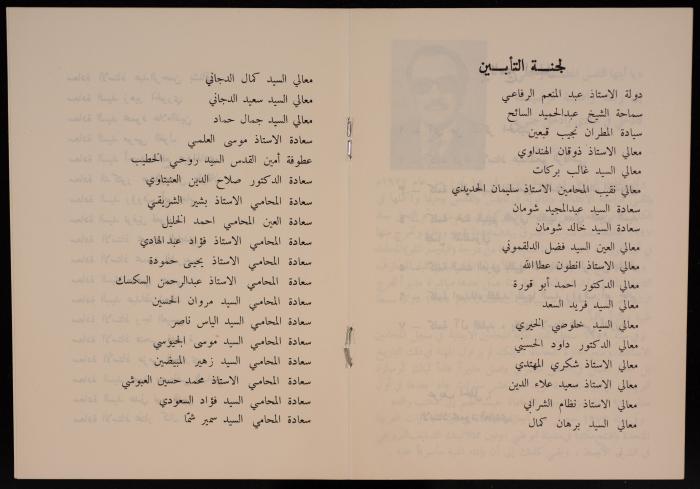 لجنـــة التأبـــين
دولة الاستاذ عبد المنعم الرفاعي
سماحة الشيخ عبدالحميد السائح
سيادة المطران نجيب قبعين
معالي الاستاذ ذوقان الهنداوي
معالي السيد غالب بركات
معالي نقيب المحامين الاستاذ سليمان الحديدي
سعادة السيد عبدالمجيد شومان
سعادة السيد خالد شومان
معالي العين السيد فضل الدلقموني
معالي الاستاذ انطون عطاالله
معالي الدكتور احمد أبو قورة
معالي السيد فريد السعد
معالي السيد خلوصي الخيري
معالي الدكتور داود الحسيني
معالي الاستاذ شكري المهتدي
معالي الاستاذ سعيد علاء الدين
معالي الاستاذ نظام الشرابي
معالي السيد برهان كمال
معالي السيد كمال الدجاني
معالي السيد سعيد الدجاني
معالي السيد جمال حماد
سعادة الاستاذ موسى العلمي
عطوفة أمين القدس السيد روحي الخطيب
سعادة الدكتور صلاح الدين العنبتاوي
سعادة المحامي الاستاذ بشير الشريقي
سعادة العين المحامي احمد الخليل
سعادة المحامي الاستاذ فؤاد عبدالهادي
سعادة المحامي الاستاذ يحيى حمودة
سعادة المحامي الاستاذ عبدالرحمن السكسك
سعادة المحامي السيد مروان الحسين
سعادة المحامي السيد الياس ناصر
سعادة المحامي السيد موسى الجيوسي
سعادة المحامي السيد زهير المبيضين
سعادة المحامي الاستاذ محمد حسين العبوشي
سعادة المحامي السيد فؤاد السعودي
سعادة المحامي السيد سمير شما